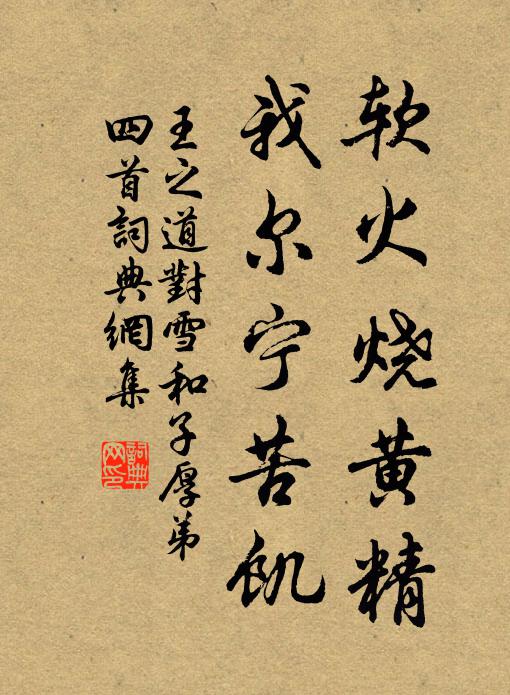 软火烧黄精
我尔宁苦饥
王之道對雪和子厚弟
四首詞典網集
詞典网印